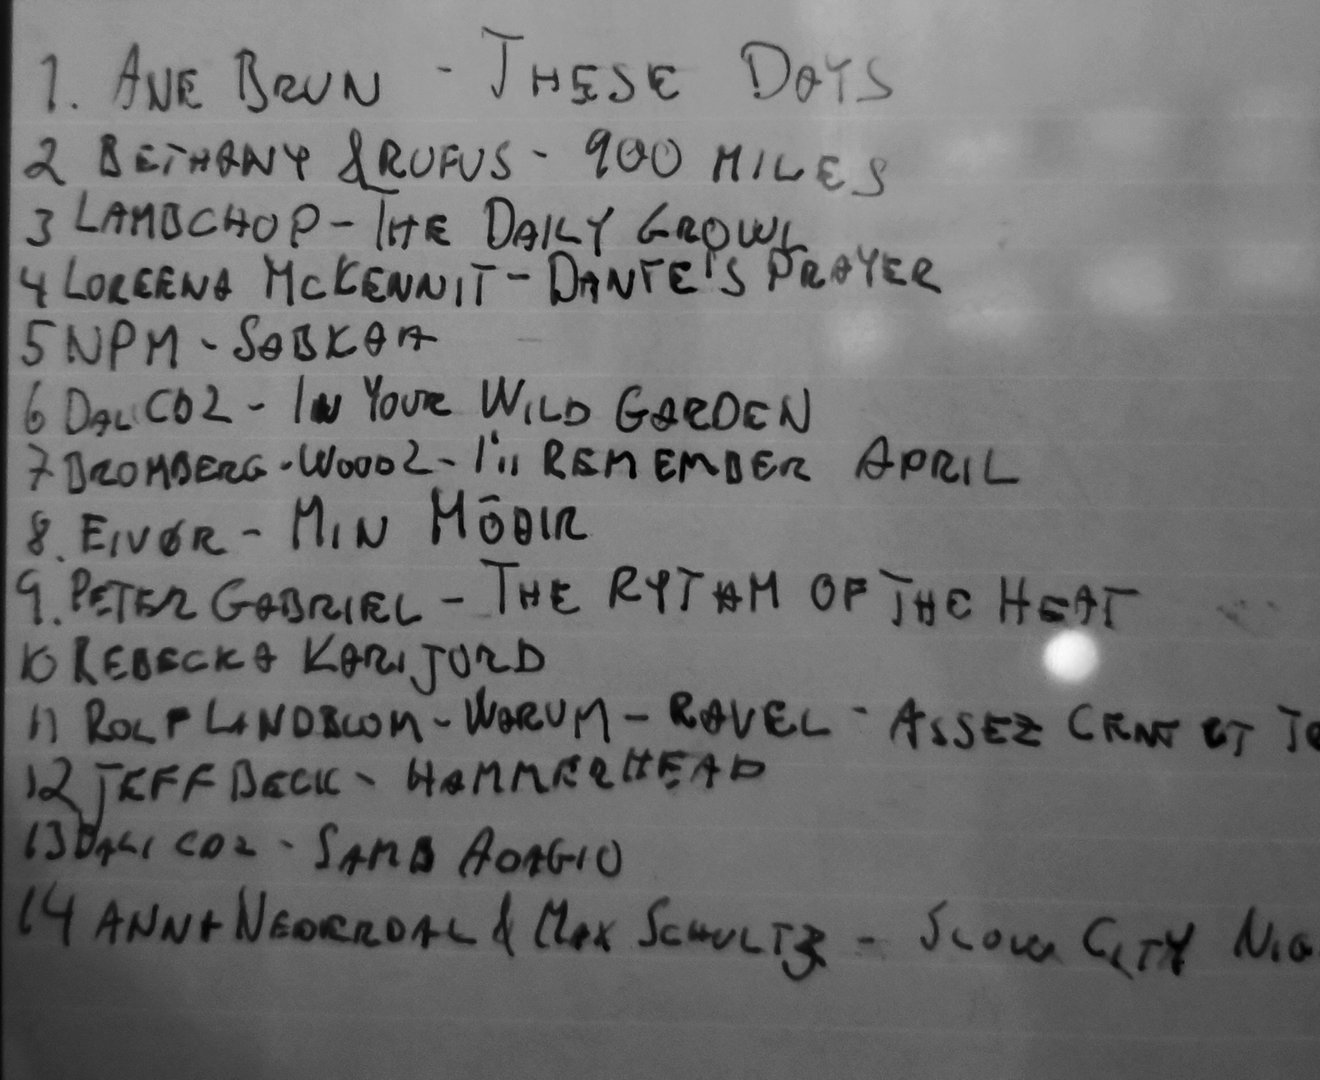 1. ANE BRUN - THESE DAYS
2 BETHANY & RUFUS - 900 MILES
3 LAMBCHOP - THE DAILY GROWL
4 LOREENA MCKENNIT - DANTE'S PRAYER
5 NPM - SABKAA
6 DALI CD2 - IN YOUR WILD GARDEN
7 BROMBERG - WOOD2 - I'll REMEMBER APRIL
8. EIVØR - MIN MÓÐIR
9. PETER GABRIEL - THE RYTHM OF THE HEAT
10 REBECKA KARIJORD
11 ROLF LINDBLOM - WARUM - RAVEL - ASSEZ ET
12 JEFF BECK - HAMMERHEAD
13 DALI CD2 - SAMB ADAGIO
14 ANNA & MAX SCHULTZ - SLOW CITY